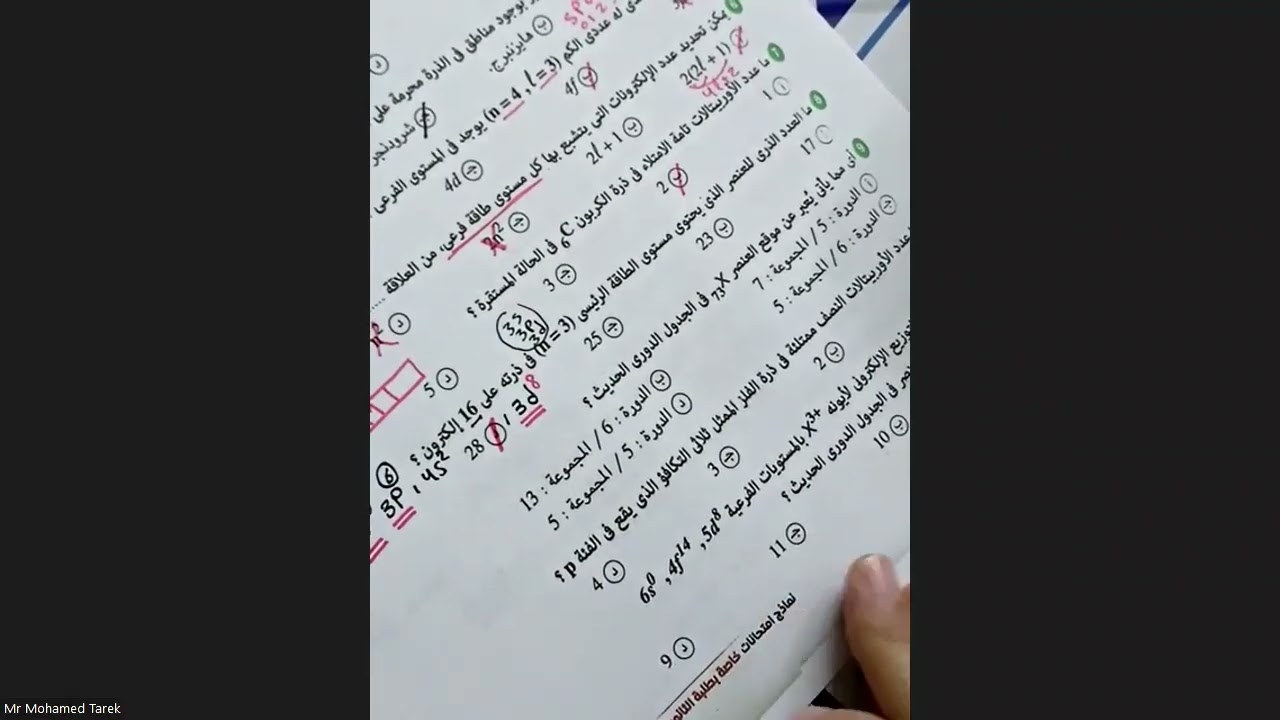 بوجود مناطق في الذرة محرمة على
ب هايزنبرج.
ج شرودنجر
spd
012
له عددى الكم (n = 4 , l = 3) يوجد في المستوى الفرعى
ب 4f
ج 4d
يمكن تحديد عدد الإلكترونات التي يتشبع بها كل مستوى طاقة فرعى، من العلاقة ....
2(2l + 1)
4l+2
ب 2l + 1
ج 2n²
د n²
7 ما عدد الأوربيتالات تامة الامتلاء في ذرة الكربون ₆C في الحالة المستقرة ؟
أ 1
ب 2
ج 3
د 5
8 ما العدد الذرى للعنصر الذي يحتوى مستوى الطاقة الرئيسى (n = 3) في ذرته على 16 إلكترون ؟
أ 17
ب 23
ج 25
د 28
3s
3p
3d
3p⁶, 4s², 3d⁸
9 أى مما يأتى يُعبر عن موقع العنصر ₇₃X في الجدول الدورى الحديث ؟
أ الدورة : 5 / المجموعة : 7
ب الدورة : 6 / المجموعة : 13
ج الدورة : 6 / المجموعة : 5
د الدورة : 5 / المجموعة : 5
عدد الأوربيتالات النصف ممتلئة في ذرة الفلز الممثل ثلاثى التكافؤ الذي يقع في الفئة p ؟
ب 2
ج 3
د 4
الإلكترونى لأيونه X³⁺ بالمستويات الفرعية 6s⁰ , 4f¹⁴ , 5d⁸
في الجدول الدورى الحديث ؟
ب 10
ج 11
د 9
نماذج امتحانات خاصة بطلبة
Mr Mohamed Tarek